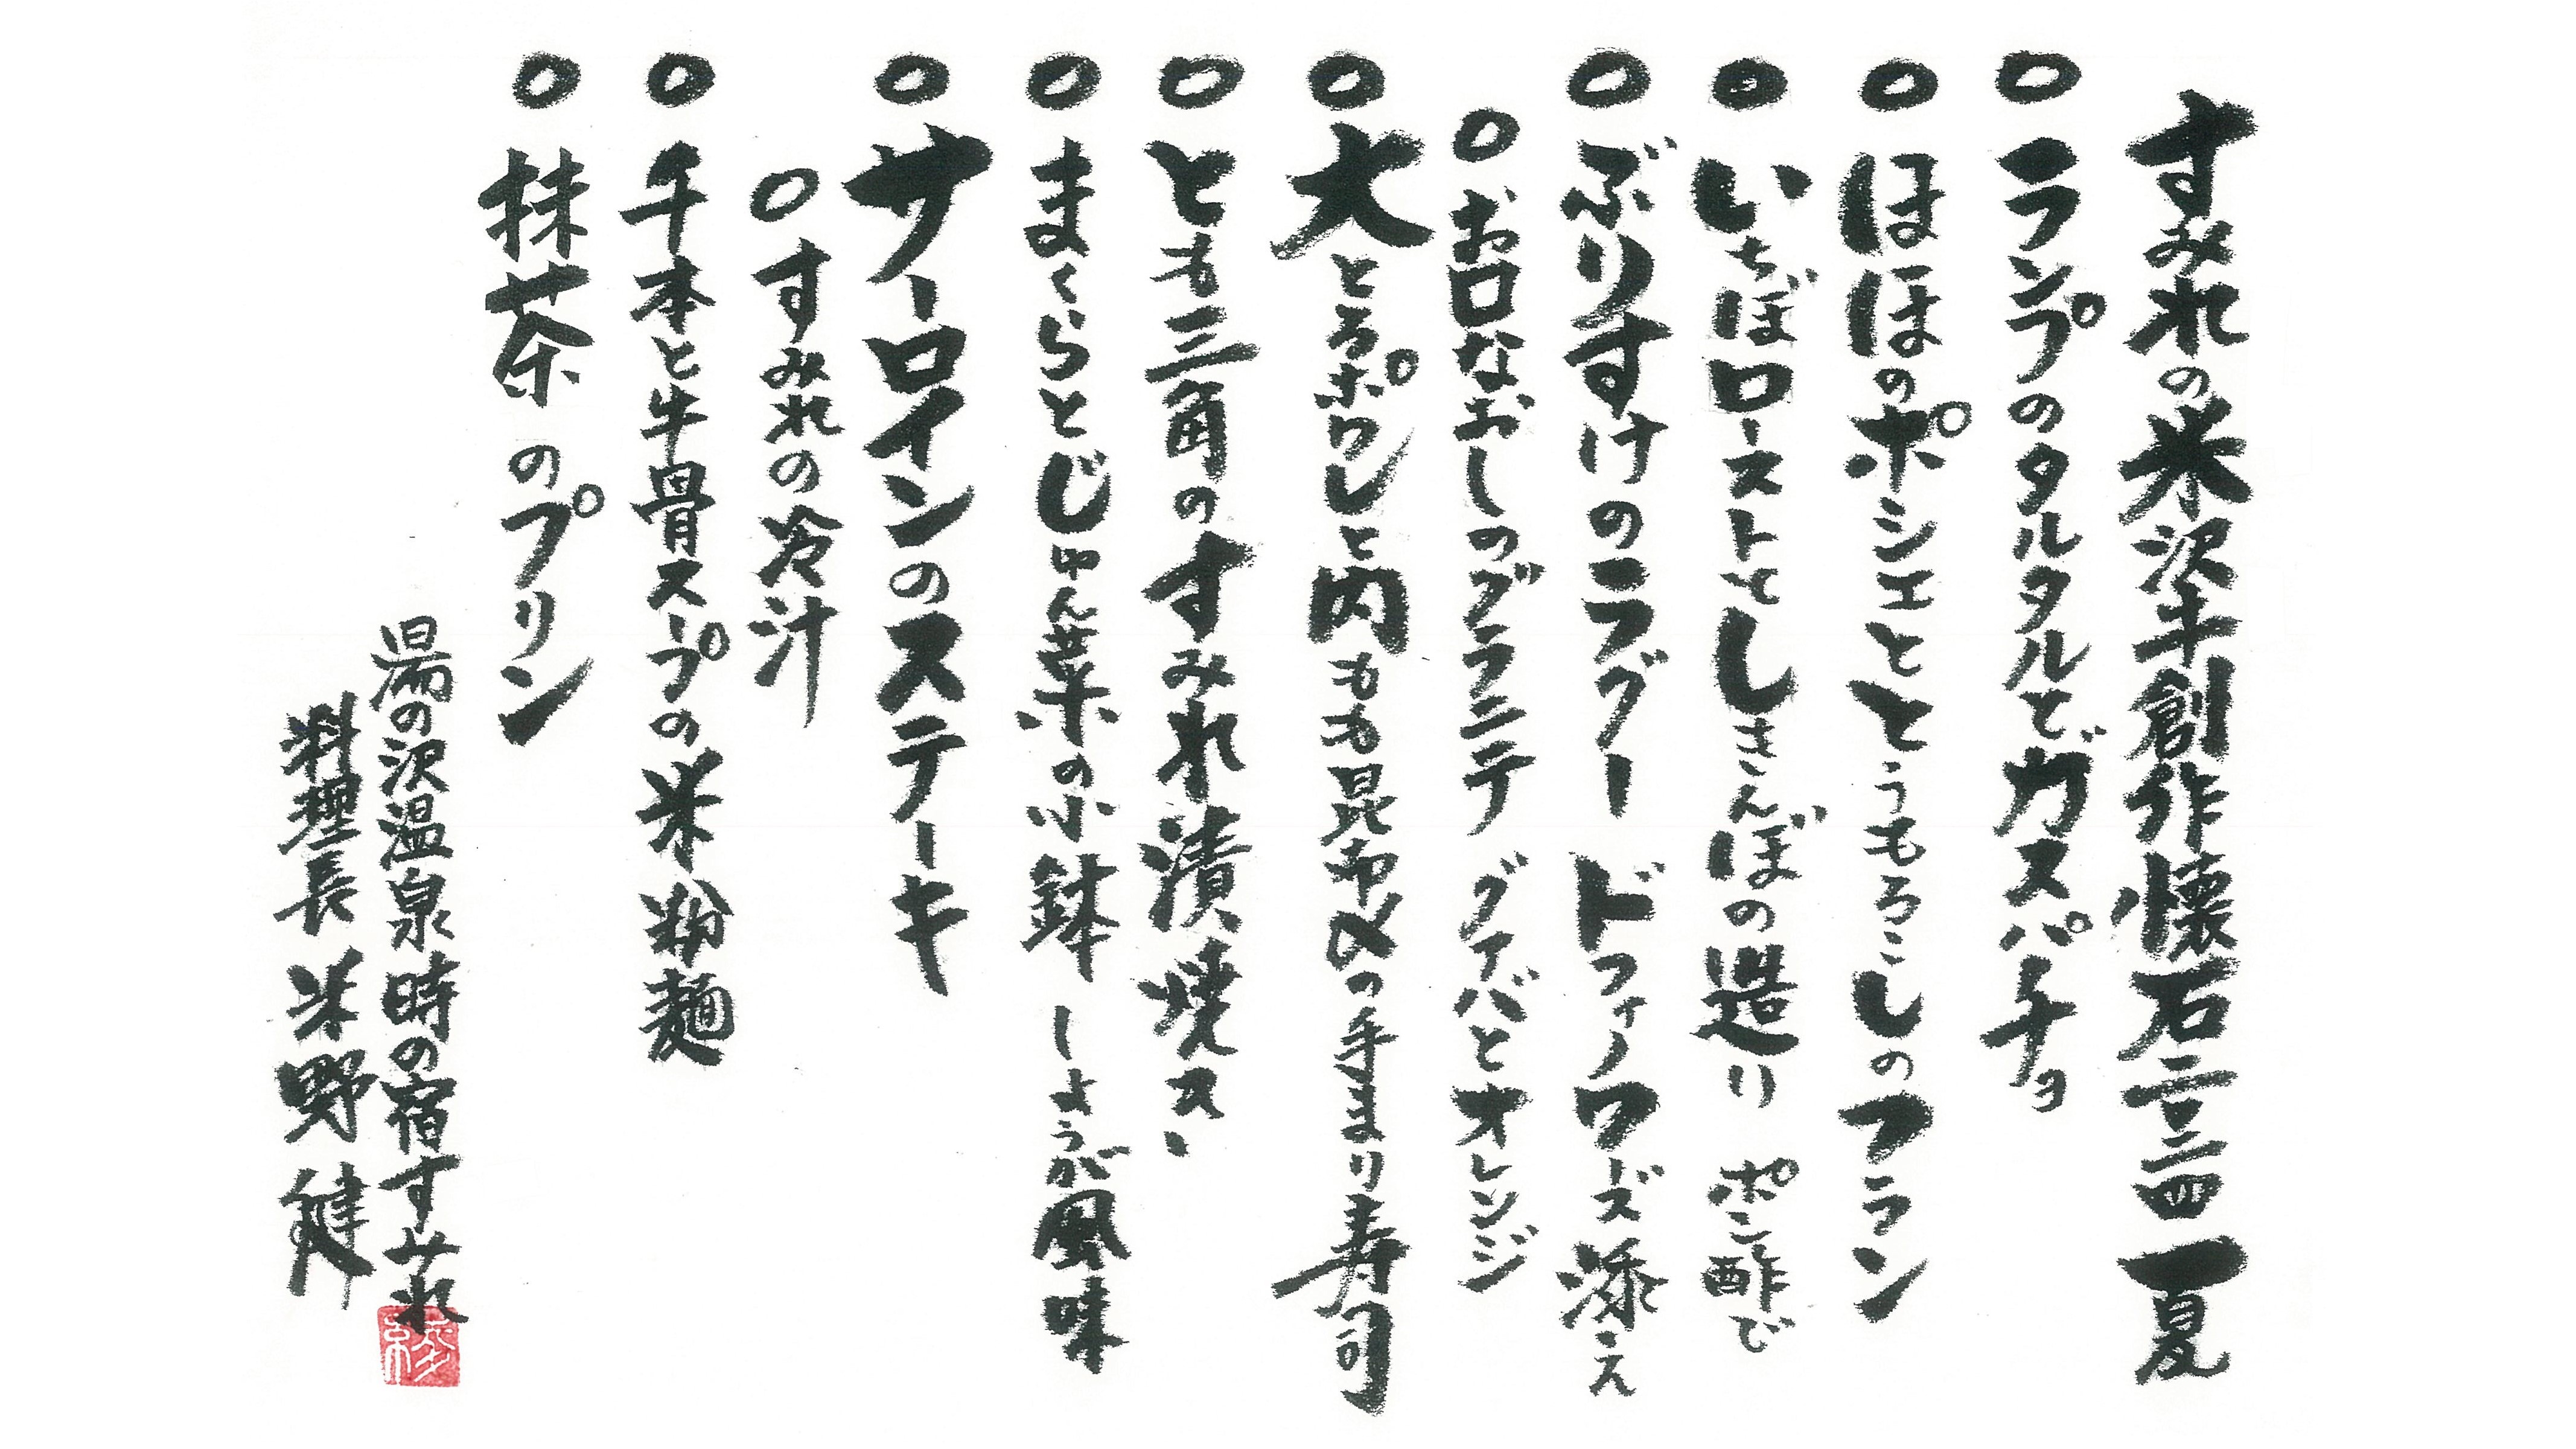 すみれの米沢牛創作懐石二〇二四 夏
○ ランプのタルタルでガスパチョ
○ ほほのポシェととうもろこしのフラン
○ いちぼローストとしきんぼの造り ポン酢で
○ ぶりすけのラグー ドフィノワーズ添え
○ お口なおしのグラニテ グアバとオレンジ
○ 大とろポワレと内もも昆布〆の手まり寿司
○ とも三角のすみれ漬焼ス
○ まくらとじゅん菜の小鉢 しょうが風味
○ サーロインのステーキ
○ すみれの冷汁
○ 千本と牛骨スープの米粉麺
○ 抹茶のプリン
湯の沢温泉時の宿すみれ
料理長 米野 健